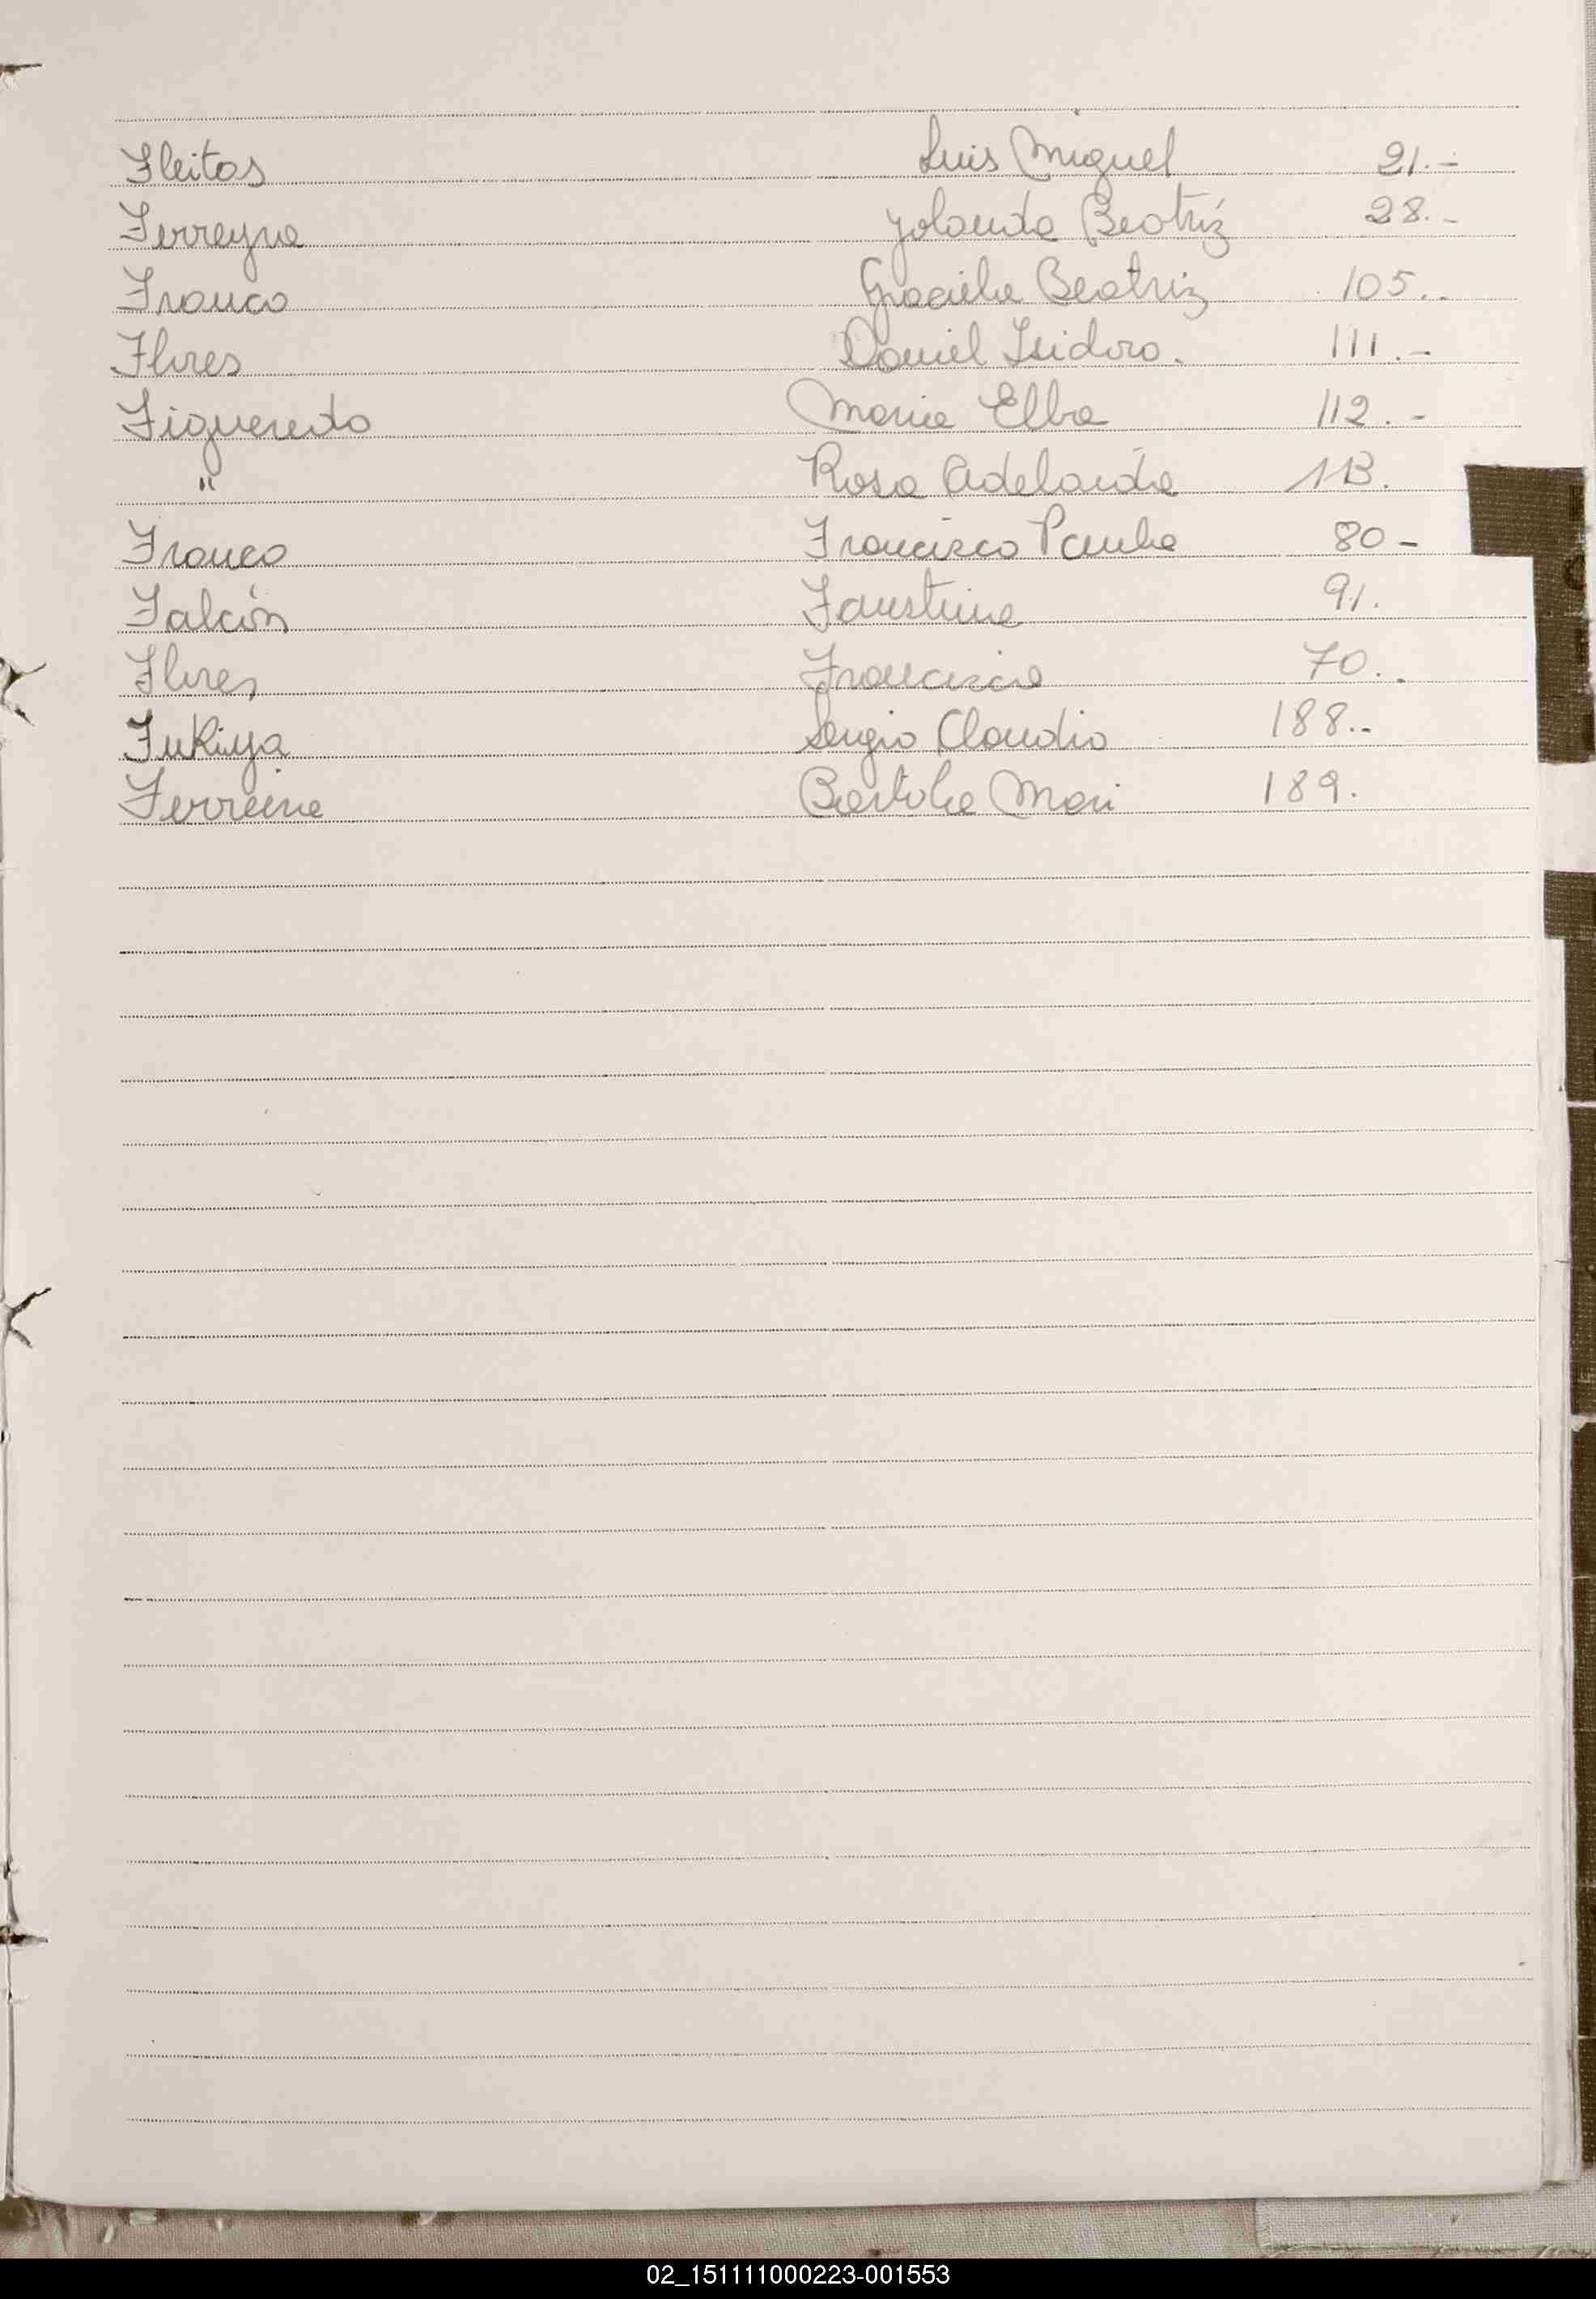 Fleitas Luis Miguel 21.-
Ferreyra Yolanda Beatríz 28.-
Franco Graciela Beatriz 105..
Flores Daniel Isidoro. 111.-
Figueredo Maria Elba 112.-
" Rosa Adelaida 113.
Franco Francisco Paula 80-
Falcón Faustina 91.
Flores Francisca 70..
Fukiya Sergio Claudio 188..
Ferreira 189.
02_151111000223-001553